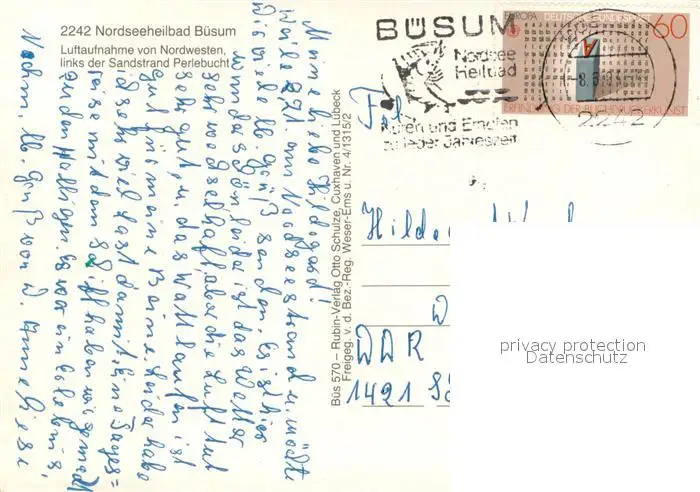 2242 Nordseeheilbad Büsum
Luftaufnahme von Nordwesten,
links der Sandstrand Perlebucht
Meine liebe Hildegard!
Weile z.Zt. am Nordseestrand u. möchte
Dir viele lb. Grüße senden. Es ist hier
wunderschön, leider ist das Wetter
sehr wechselhaft, aber die Luft tut
sehr gut, u. das Wattlaufen ist
gut für meine Beine. Leider habe
ich sehr viel Last damit. Eine Tages=
reise mit dem Schiff haben wir gemacht
zu den Halligen. Es war ein Erlebnis.
Nochm. lb. Gruß von D. Anneliese
Büs 570 – Rubin-Verlag Otto Schulze, Cuxhaven und Lübeck
Freigeg. v. d. Bez.-Reg. Weser-Ems u. Nr. 4/1315/2
BÜSUM
Nordsee
Heilbad
Kuren und Erholen
zu jeder Jahreszeit
EUROPA DEUTSCHE BUNDESPOST 60
ERFINDUNG DER BUCHDRUCKERKUNST
2242
DDR
1421
privacy protection
Datenschutz